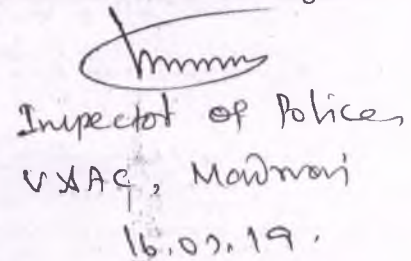 Inspector of Police,
V&AC, Madurai
16.07.19.